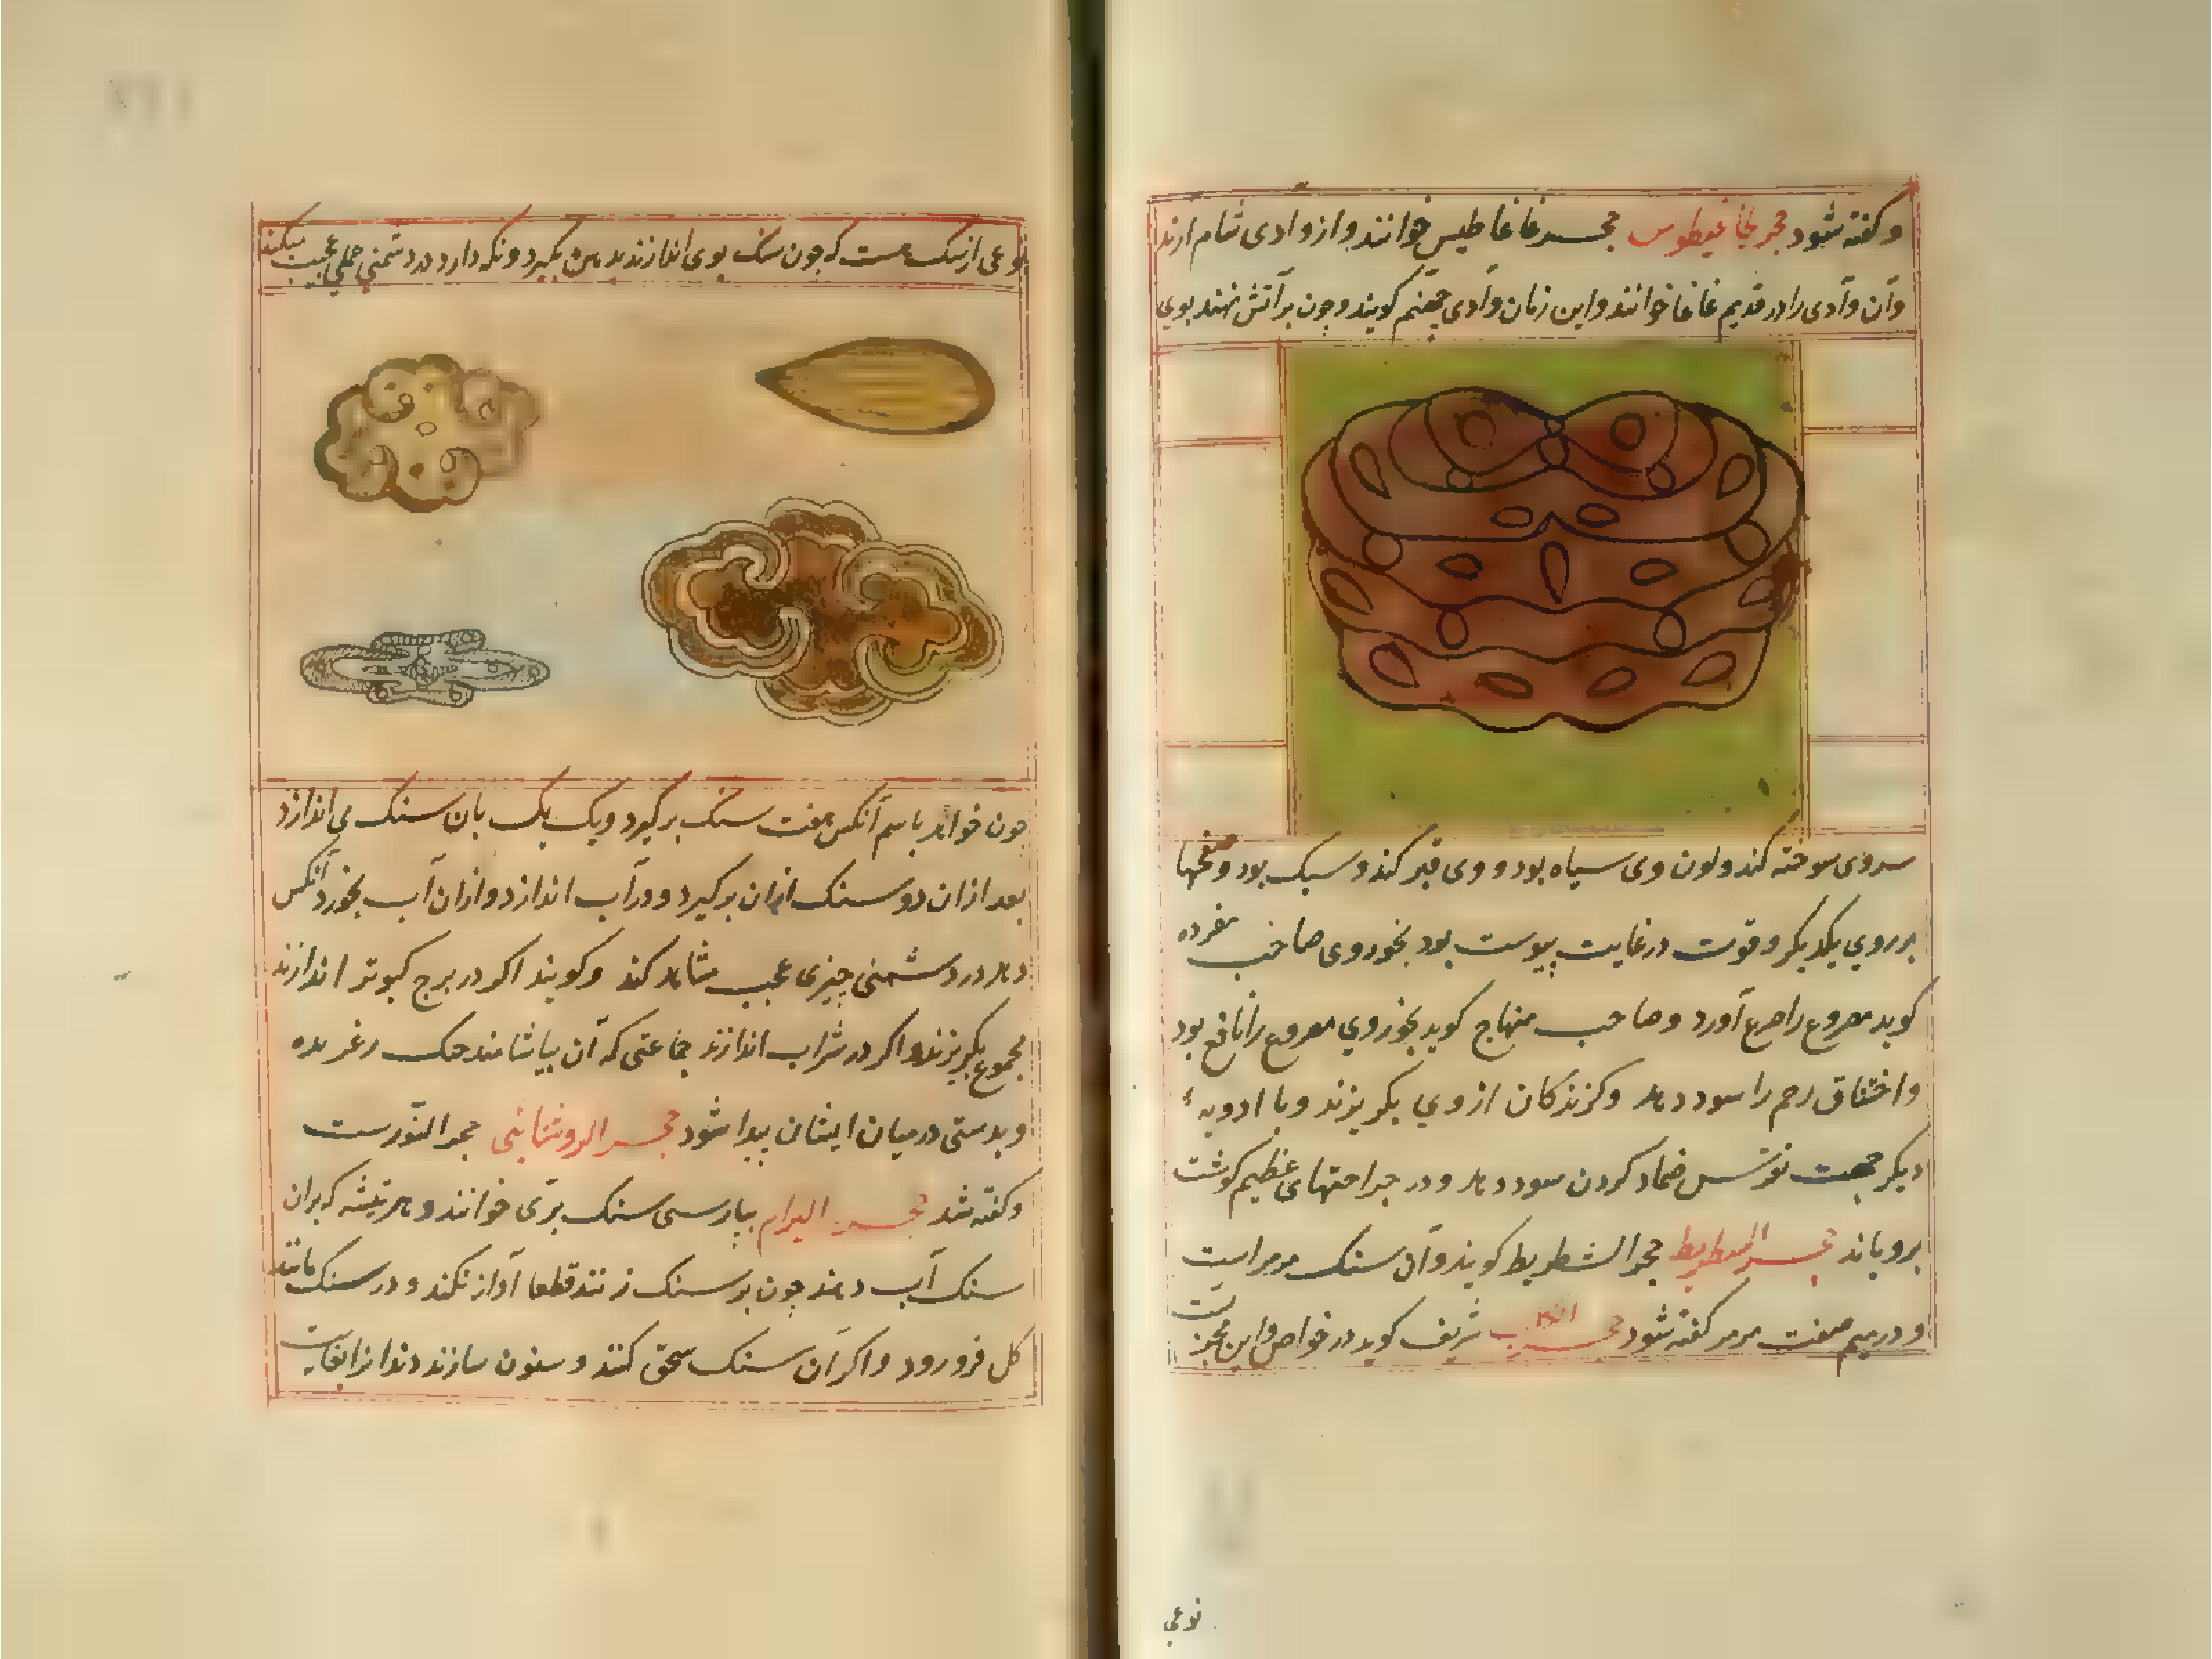 و کفته شود حجر غاغیطوس حجر غاغاطیس خوانند و از وادی شام ارند
وآن وآدی را در قدیم غاغا خوانند و این زمان وآدی جهنم کویند و جون بر آتش نهند بوی
سروی سوخته کند و لون وی سیاه بود و وی قیر کند و سبک بود و صفحها
بر روی یکدیکر و قوت در غایت یبوست بود بخور وی صاحب مفرده
کوید مصروع را صرع آورد و صاحب منهاج کوید بخور وی مصروع را نافع بود
و اختناق رحم را سود دهد و کزندکان از وی بکریزند و با ادویه
دیکر جهت نقرس ضماد کردن سود دهد و در جراحتهای عظیم کوشت
برویاند حجر السطریط حجر الشطریط کویند و آن سنک مرمر است
و در میم صفت مرمر کفته شود حجر الکلب شریف کوید در خواص و این
نوعی
نوعی از سنک هست که جون سنک بوی اندازند بدهن بکیرد و نکه دارد در دشمنی عملی عجیب میکند
جون خواهد باسم آنکس هفت سنک برکیرد و یک یک بان سنک می اندازد
بعد ازان دو سنک ازان برکیرد و در آب اندازد و ازان آب بخورد آنکس
دهد در دشمنی چیزی عجب مشاهد کند و کویند اکر در برج کبوتر اندازند
مجموع بکریزند و اکر در شراب اندازند جماعتی که آن بیاشامند جنک و عربده
و بدمستی در میان ایشان پیدا شود حجر الروشنائی حجر النورست
و کفته شد حجر البرام بپارسی سنک بری خوانند و هر تیشه که بران
سنک آب دهند چون بر سنک زنند قطعا آواز نکند و در سنک مانند
کل فرو رود و اکر آن سنک سحق کنند و سنون سازند دندانرا بغایت